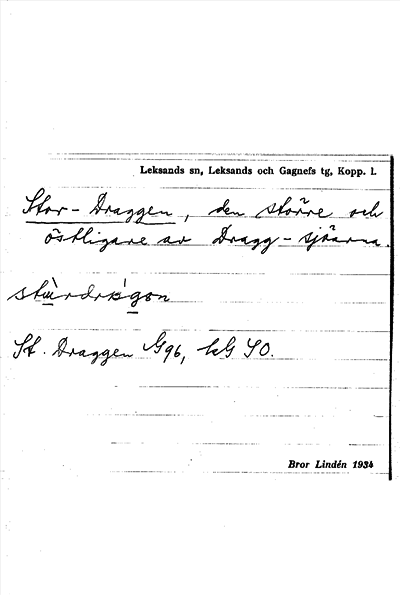 Leksands sn, Leksands och Gagnefs tg, Kopp. l.
Stor-Draggen, den större och
östligare av Dragg-sjöarna.
St. Draggen G96, kG SO.
Bror Lindén 1934